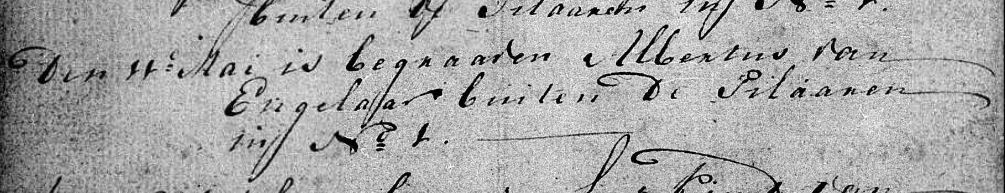 buiten de Pilaaren in N.º 1.
Den 11e Mai is begraaven Albertus van
Engelaar buiten De Pilaaren
in N.º 1.
Kind van